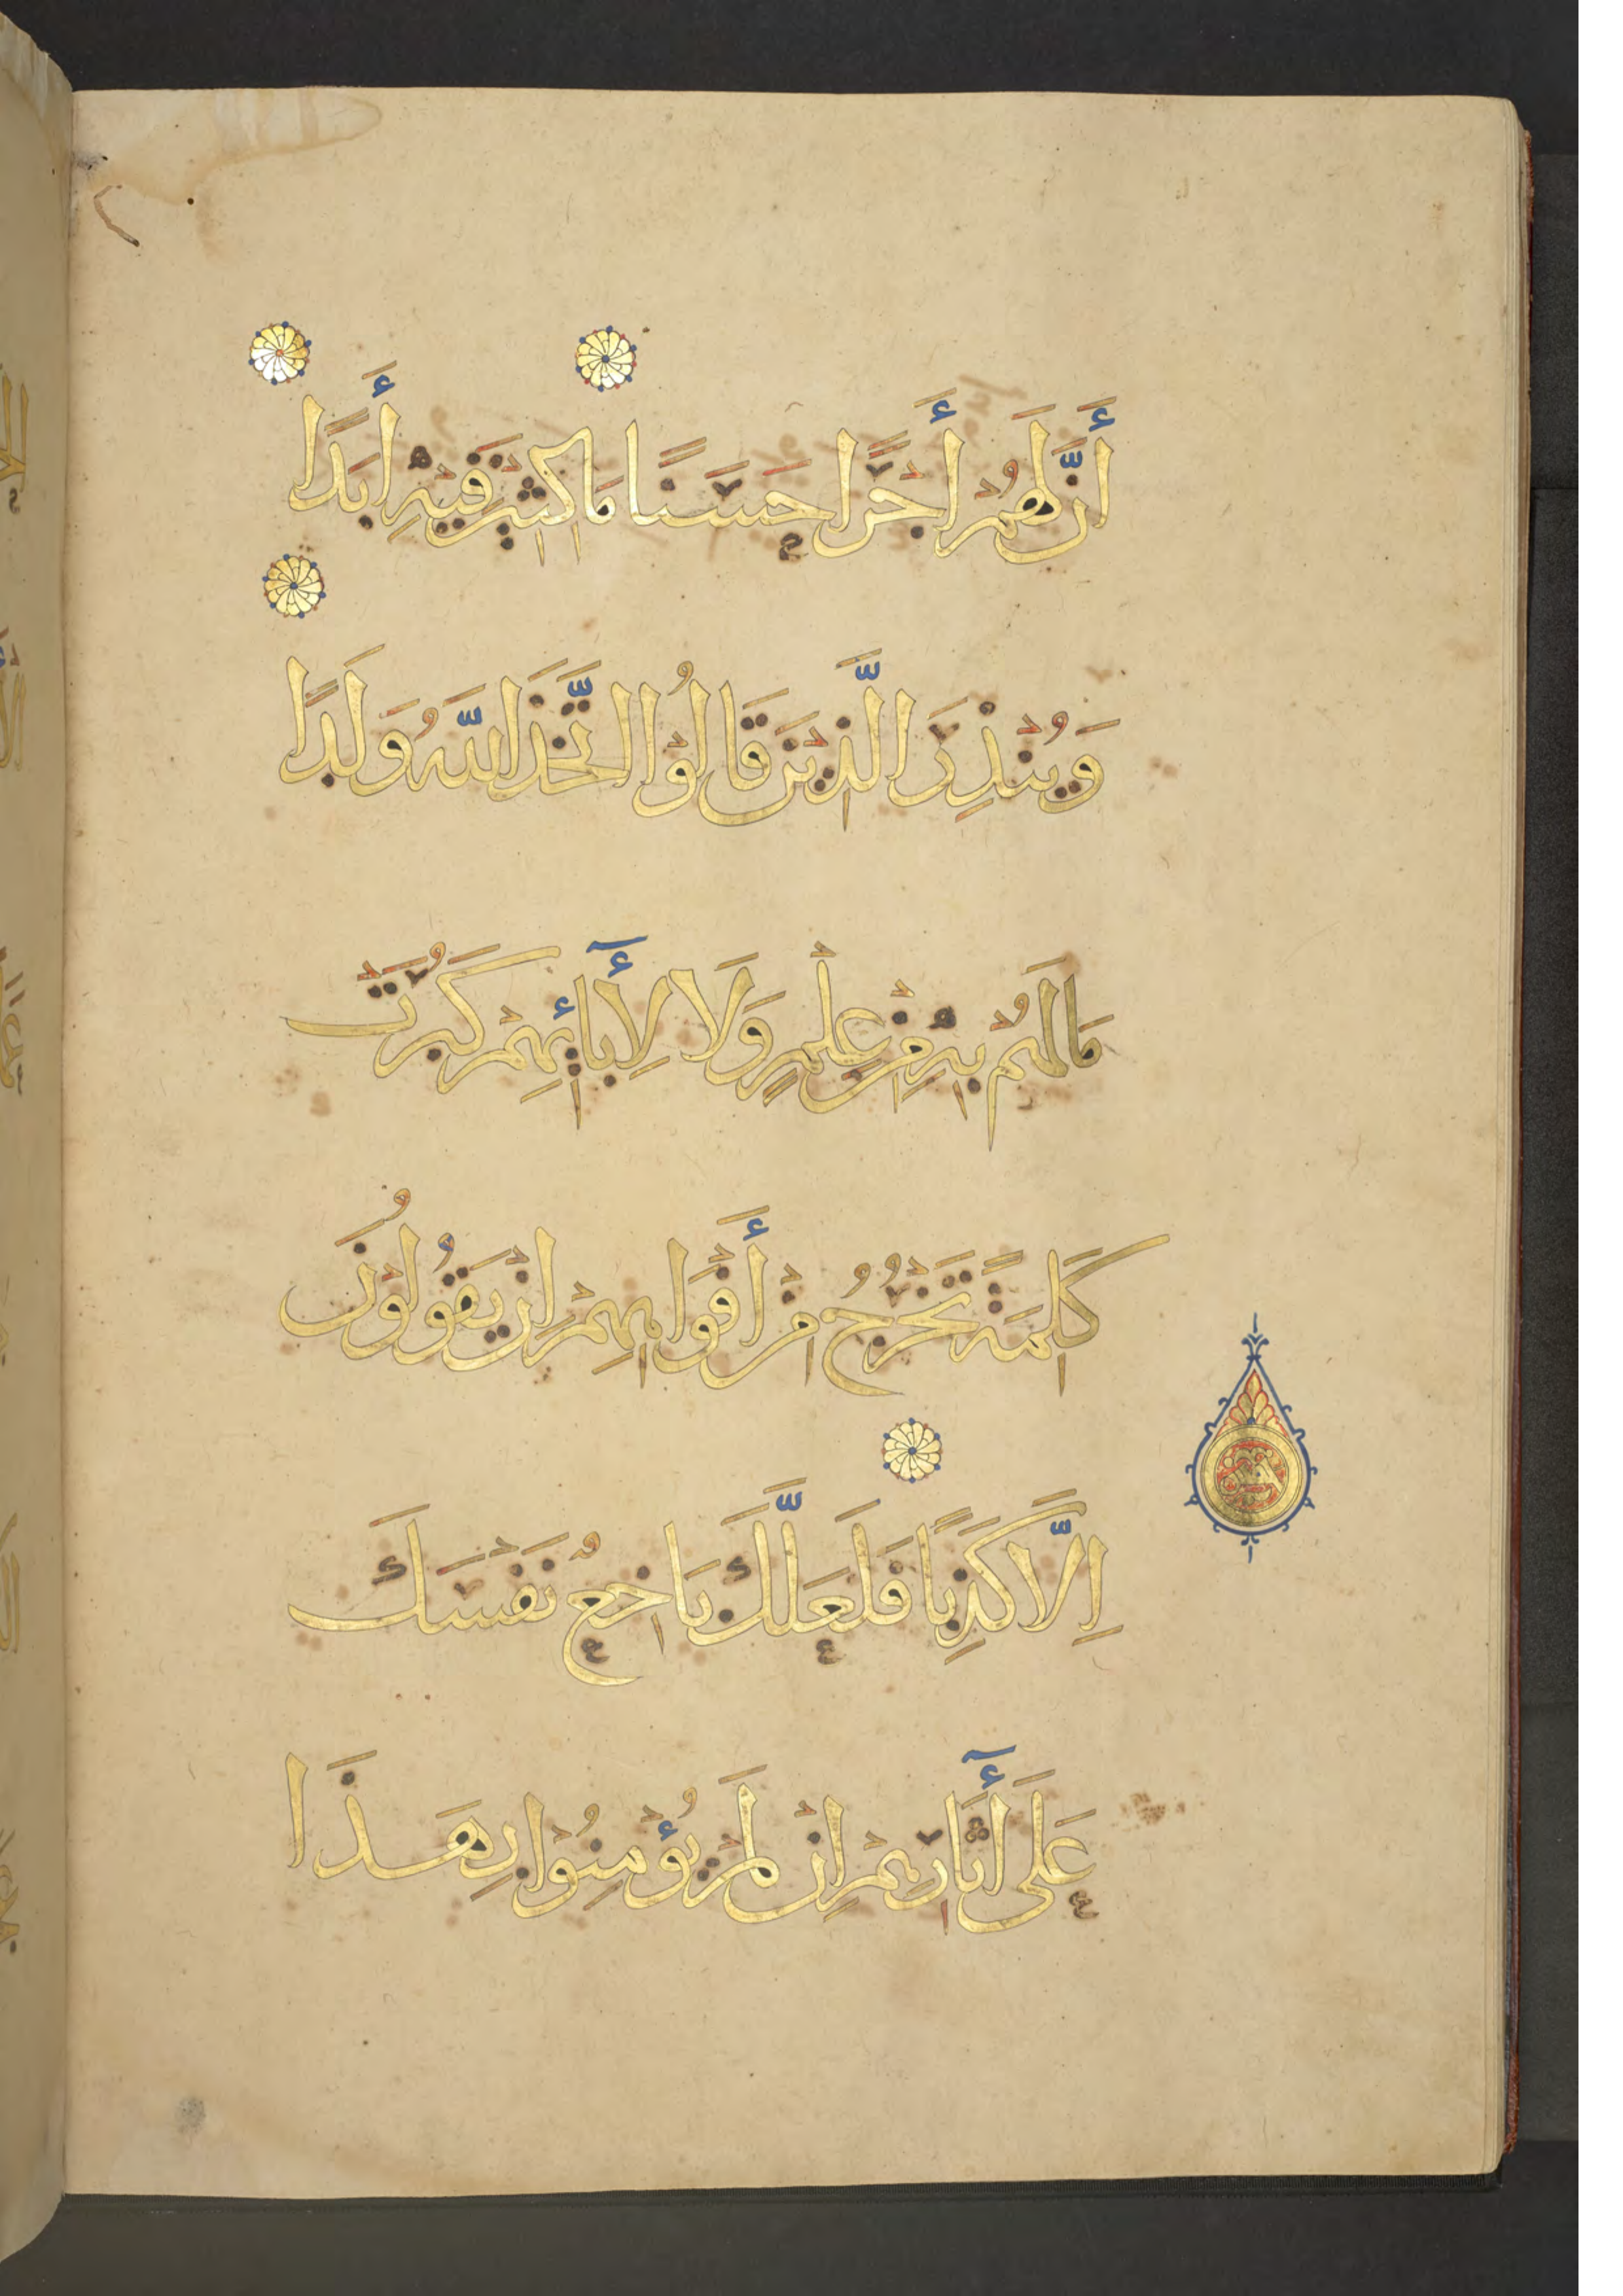 أَنَّ لَهُمْ أَجْرًا حَسَنًا مَاكِثِيْنَ فِيْهِ أَبَدًا
وَيُنْذِرَ الَّذِيْنَ قَالُوْا اتَّخَذَ اللّٰهُ وَلَدًا
مَا لَهُمْ بِهِ مِنْ عِلْمٍ وَلَا لِأٓبَائِهِمْ كَبُرَتْ
كَلِمَةً تَخْرُجُ مِنْ أَفْوَاهِهِمْ إِنْ يَقُوْلُوْنَ
إِلَّا كَذِبًا فَلَعَلَّكَ بَاخِعٌ نَفْسَكَ
عَلَى أٓثَارِهِمْ إِنْ لَمْ يُؤْمِنُوْا بِهَذَا